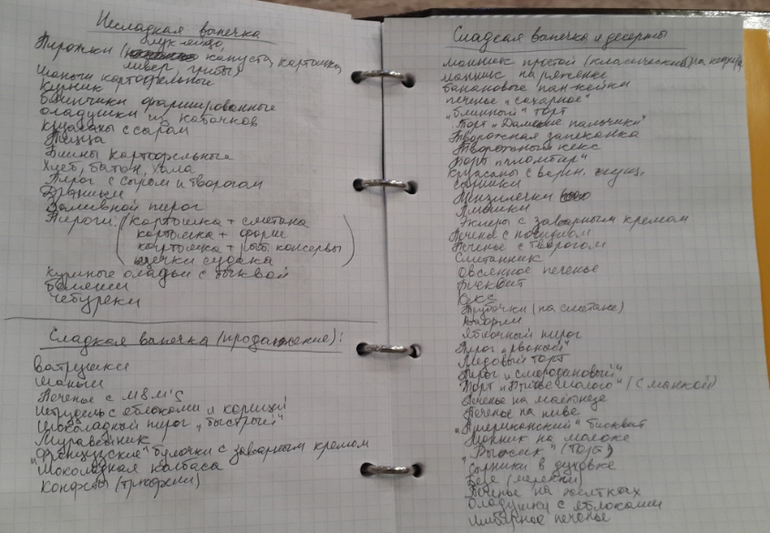 Несладкая выпечка
лук-яйцо,
Пирожки ( капуста, картошка,
ливер, грибы)
Шаньги картофельные
Курник
Блинчики фаршированные
Оладушки из кабачков
Круасаны с сыром
Пицца
Блины картофельные
Хлеб, батон, хала
Пирог с сыром и творогом
Драники
Заливной пирог
Пироги: (картошка + сметана
картошка + фарш
картошка + рыб. консервы
щечки судака)
Куриные оладьи с тыквой
Беляши
Чебуреки
Сладкая выпечка (продолжение):
Ватрушки
Шаньги
Печенье с M&M'S
Штрудель с яблоками и корицей
Шоколадный пирог "быстрый"
Муравейник
"Французские" булочки с заварным кремом
Шоколадная колбаса
Конфеты (трюфели)
Сладкая выпечка и десерты
манник простой (классический) на кефире
манник на ряженке
банановые пан-кейки
печенье "сахарное"
"блинный" торт
Торт "Дамские пальчики"
Творожная запеканка
Творожный кекс
Торт "пломбир"
Круасаны с варен. сгущ.
Сырники
Ямошки
Эклеры с заварным кремом
Печенье с повидлом
Печенье с творогом
Сметанник
Овсяное печенье
Бисквит
Кекс
Трубочки (на сметане)
Яблочный пирог
Пирог "рваный"
Медовый торт
Пирог "смородиновый"
Торт "Птичье молоко" (с манкой)
Печенье на майонезе
Печенье на пиве
"Американский" бисквит
Манник на молоке
"Рыжик" (торт)
"Сырники в духовке
Безе (меренги)
Печенье на желтках
Оладушки с яблоками
Имбирное печенье